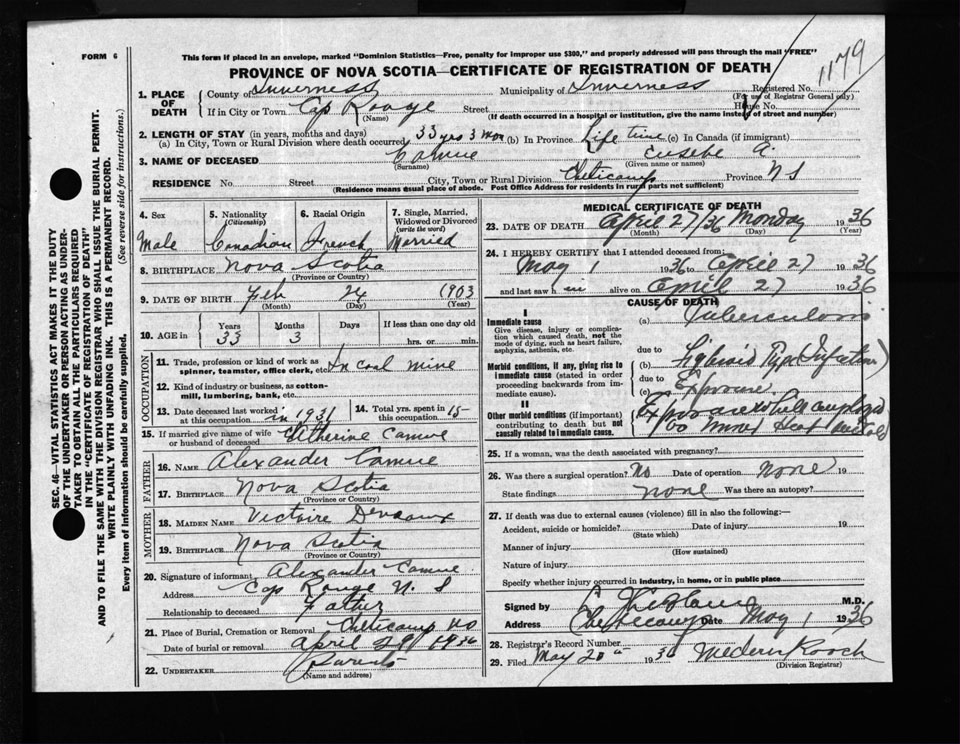 FORM 6
This form if placed in an envelope, marked "Dominion Statistics—Free, penalty for improper use $300," and properly addressed will pass through the mail "FREE"
PROVINCE OF NOVA SCOTIA—CERTIFICATE OF REGISTRATION OF DEATH
1179
1. PLACE OF DEATH
County of Inverness Municipality of Inverness Registered No.
(For use of Registrar General only)
If in City or Town Cap Rouge Street House No.
(Name) (If death occurred in a hospital or institution, give its name instead of street and number)
2. LENGTH OF STAY (in years, months and days)
(a) In City, Town or Rural Division where death occurred 33 yrs 3 mon (b) In Province Life time (c) In Canada (if immigrant)
3. NAME OF DECEASED Camue Eusebe A.
(Surname) (Given name or names)
RESIDENCE No. Street City, Town or Rural Division Cheticamp Province N S
(Residence means usual place of abode. Post Office Address for residents in rural parts not sufficient)
SEC. 46—VITAL STATISTICS ACT MAKES IT THE DUTY
OF THE UNDERTAKER OR PERSON ACTING AS UNDER-
TAKER TO OBTAIN ALL THE PARTICULARS REQUIRED
IN THE "CERTIFICATE OF REGISTRATION OF DEATH"
AND TO FILE THE SAME WITH THE DIVISION REGISTRAR WHO SHALL ISSUE THE BURIAL PERMIT.
WRITE PLAINLY WITH UNFADING INK. THIS IS A PERMANENT RECORD.
Every item of information should be carefully supplied. (See reverse side for instructions.)
4. Sex
5. Nationality
(Citizenship)
6. Racial Origin
7. Single, Married, Widowed or Divorced
(write the word)
Male Canadian French Married
8. BIRTHPLACE Nova Scotia
(Province or Country)
9. DATE OF BIRTH Feb 24 1903
(Month) (Day) (Year)
10. AGE in
Years Months Days If less than one day old
33 3 hrs. or min.
OCCUPATION
11. Trade, profession or kind of work as spinner, teamster, office clerk, etc. In coal mine
12. Kind of industry or business, as cotton-mill, lumbering, bank, etc.
13. Date deceased last worked at this occupation in 1931
14. Total yrs. spent in this occupation 15
15. If married give name of wife or husband of deceased Catherine Camue
FATHER
16. NAME Alexander Camue
17. BIRTHPLACE Nova Scotia
(Province or Country)
MOTHER
18. MAIDEN NAME Victoire Deveaux
19. BIRTHPLACE Nova Scotia
(Province or Country)
20. Signature of informant Alexander Camue
Address Cap Rouge N. S
Relationship to deceased Father
21. Place of Burial, Cremation or Removal Cheticamp
Date of burial or removal April 29 1936
22. UNDERTAKER Parents
(Name and address)
MEDICAL CERTIFICATE OF DEATH
23. DATE OF DEATH April 27/36 Monday 1936
(Month) (Day) (Year)
24. I HEREBY CERTIFY that I attended deceased from:
May 1 1936 to April 27 1936
and last saw him alive on April 27 1936
CAUSE OF DEATH
I
Immediate cause
Give disease, injury or complication which caused death, not the mode of dying, such as heart failure, asphyxia, asthenia, etc.
(a) Tuberculosis
due to
Morbid conditions, if any, giving rise to immediate cause (stated in order proceeding backwards from immediate cause).
(b) Fibroid Type Infection
due to
(c) Exposure
II
Other morbid conditions (if important) contributing to death but not causally related to immediate cause.
Exposure while employed
25. If a woman, was the death associated with pregnancy?
26. Was there a surgical operation? No Date of operation None 19
State findings none Was there an autopsy?
27. If death was due to external causes (violence) fill in also the following:—
Accident, suicide or homicide? Date of injury 19
(State which)
Manner of injury
(How sustained)
Nature of injury
Specify whether injury occurred in industry, in home, or in public place
Signed by M.D.
Address Cheticamp Date May 1 1936
28. Registrar's Record Number
29. Filed May 20th 1936
(Division Registrar)